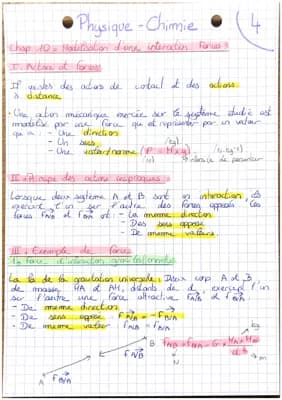 Physique - Chimie
4
Chap 10 : Modélisation d'une interaction : Forces
I - Actions et forces
Il existe des actions de contact et des actions
à distance
- Une action mécanique exercée sur le système étudié est
modélisée par une force qui est représentée par un vecteur
qui a : - Une direction
- Un sens
- Une valeur/norme (P = M x g)
(kg)
(N.kg⁻¹)
(N)
intensité de pesanteur
II - Principe des actions réciproques :
Lorsque deux système A et B sont en interaction, ils
exercent l'un sur l'autre des forces opposés. Les
forces F A/B et F B/A ont : - La même direction
- Des sens opposé
- De même valeurs.
III - Exemple de force
1) Force d'interaction gravitationnelle
La loi de la gravitation universelle : Deux corps A et B,
de masse MA et MB, distants de d, exercent l'un
sur l'autre une force attractive F A/B et F B/A :
- De même direction
- De sens opposé F A/B = - F B/A
- De même valeur F A/B = F B/A
F A/B = F B/A = G x MA x MB
d²
kg
m
N
A
B
F B/A
F A/B